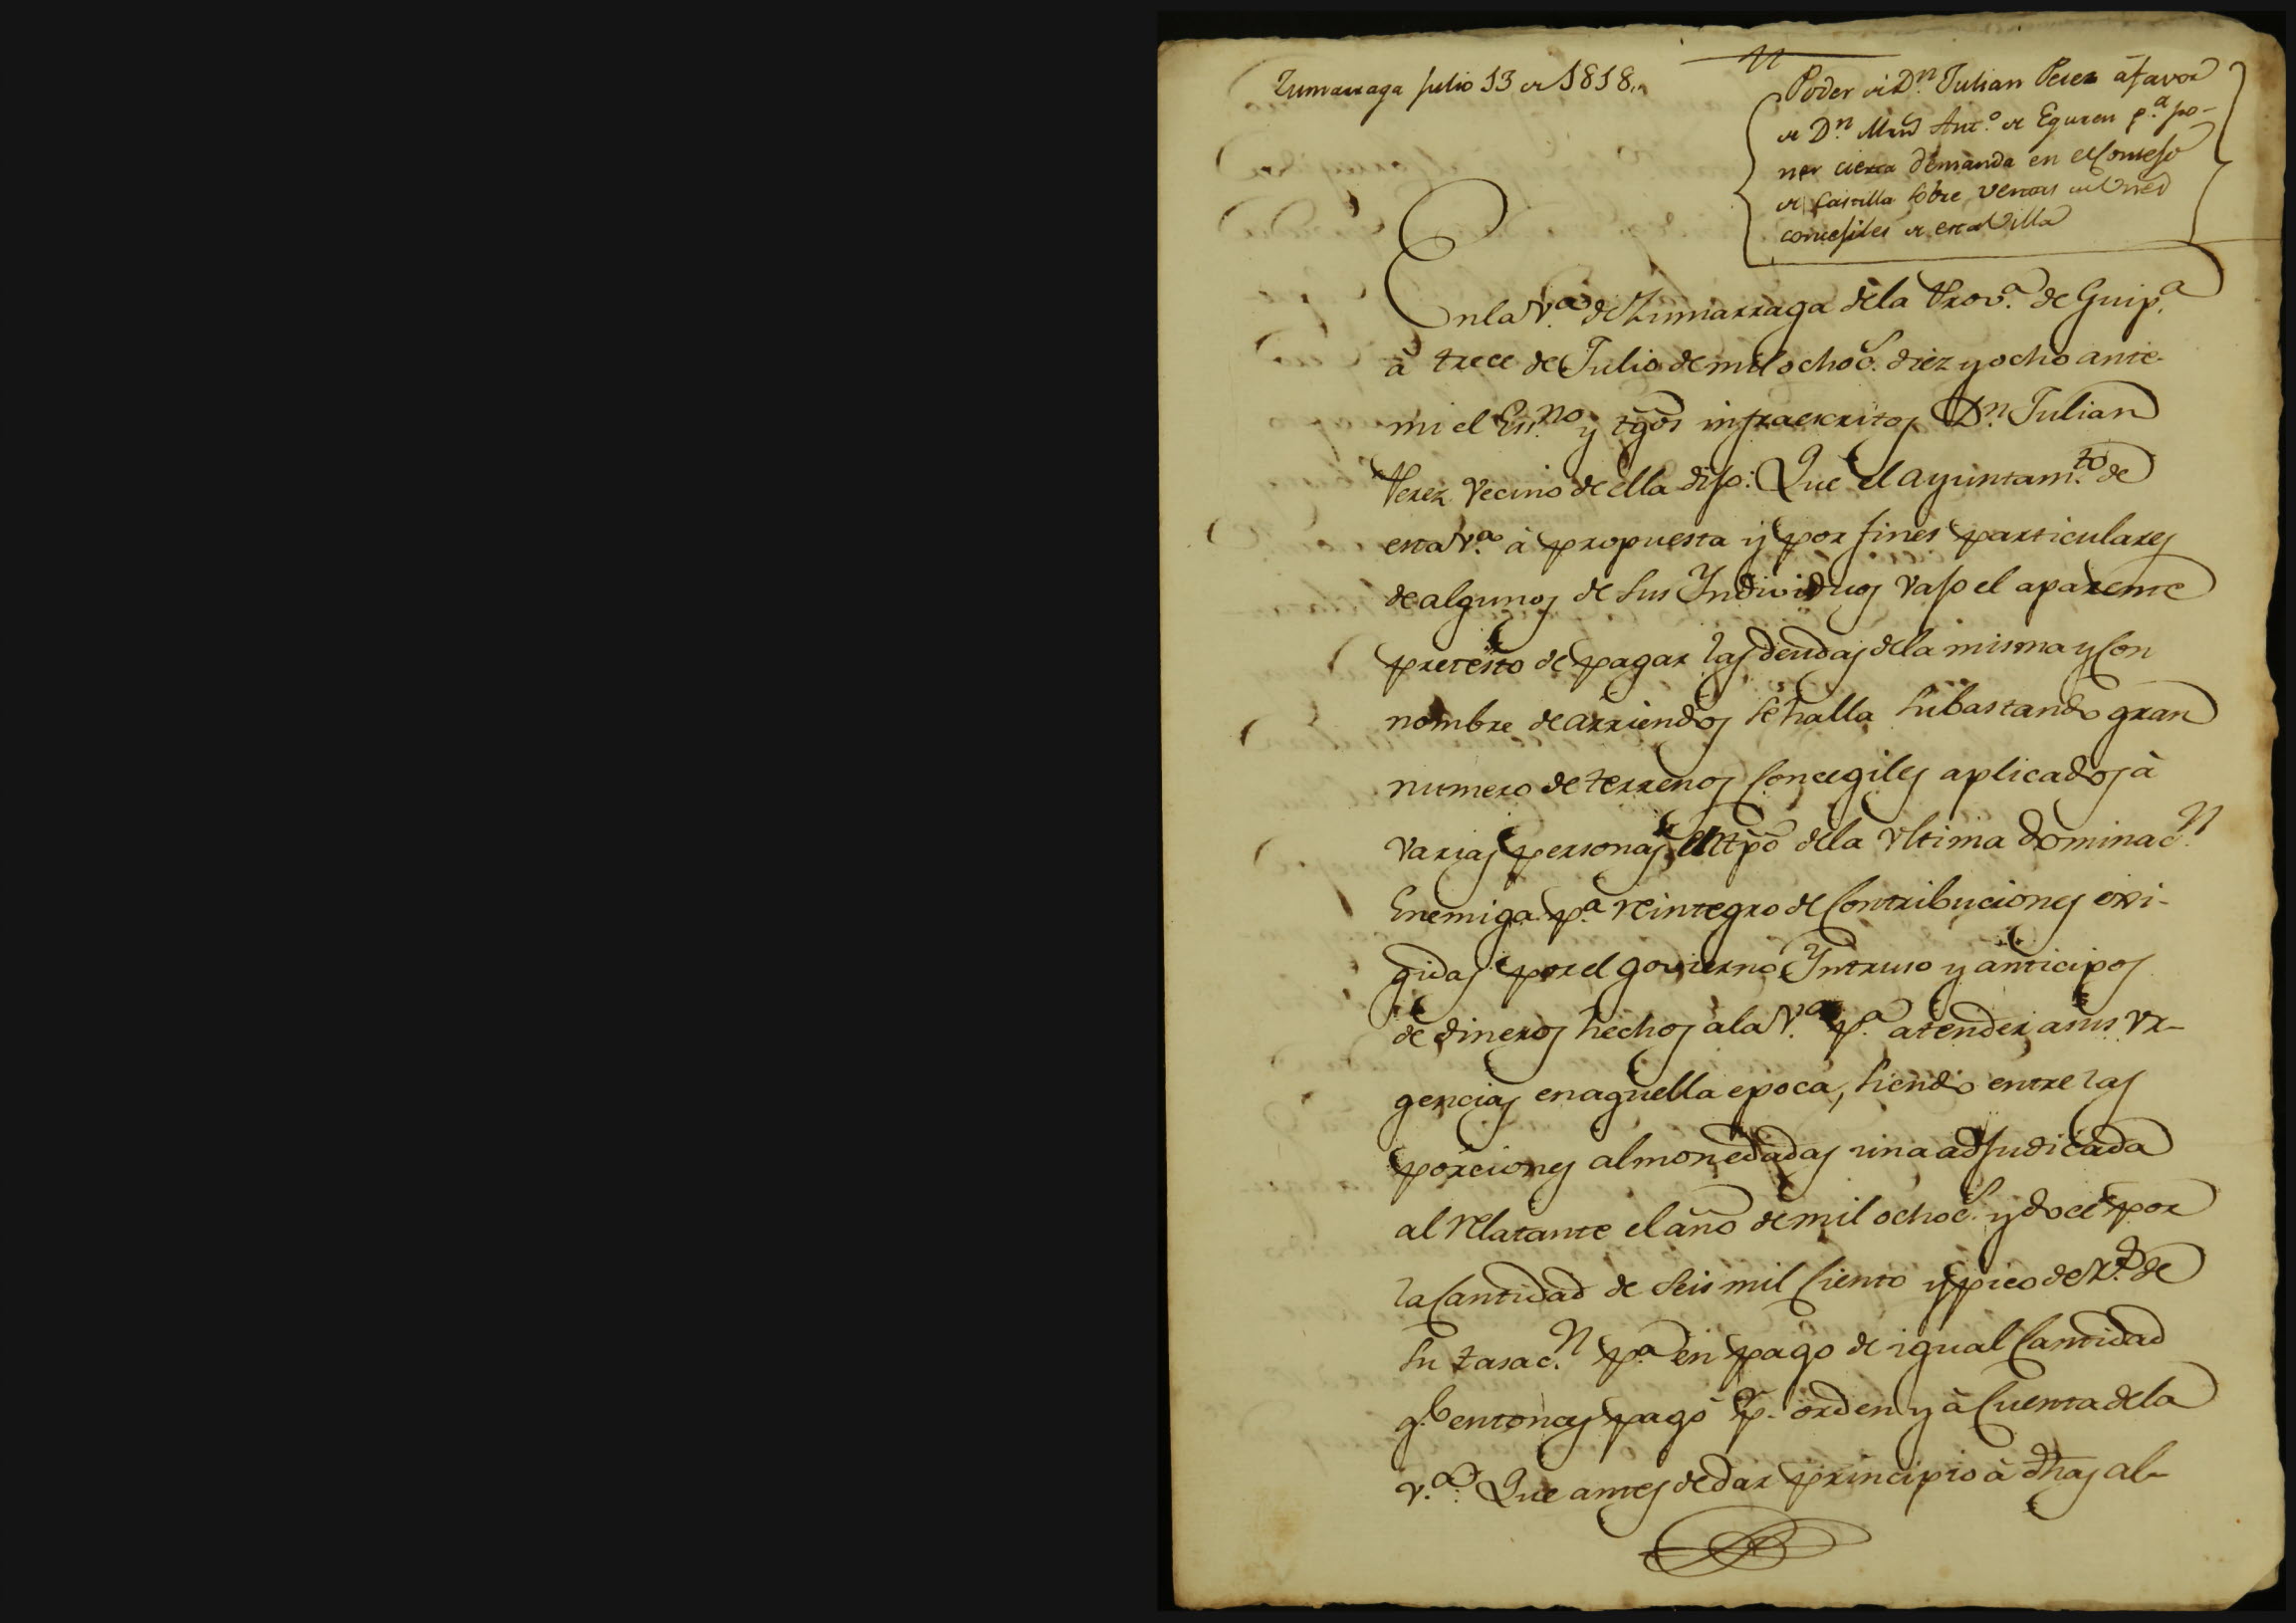 Zumarraga Julio 13 de 1818..
Poder de Dn. Julian Perez á favor
de Dn. Ant.o de Eguren p.a po-
ner cierta demanda en el Consejo
de Castilla sobre ventas de
concejiles de esta Villa
En la V.a de Zumarraga de la Prov.a de Guip.a
à trece de Julio de mil ochoc.s diez y ocho ante-
mi el Ess.no y tgõs infraescritos Dn. Julian
Perez vecino de ella dijo: Que el ayuntam.to de
esta V.a à propuesta y por fines particulares
de algunos de sus Yndividuos vajo el aparente
pretesto de pagar las deudas de la misma y con
nombre de arriendos se halla subastando gran
numero de terrenos Concegiles aplicados à
varias personas en tpõ de la ultima dominac.n
Enemiga p.a reintegro de Contribuciones exi-
gidas por el govierno Yntruso y anticipos
de dineros hechos a la V.a p.a atender a sus ur-
gencias en aquella epoca, siendo entre las
porciones almonedadas una adjudicada
al relatante el año de mil ochoc.s y doce por
la Cantidad de seis mil Ciento y pico de r.s de
su tasac.n p.a en pago de igual Cantidad
q.e entonces pagò p.r orden y à Cuenta de la
V.a: Que antes de dar principio à dhas al-